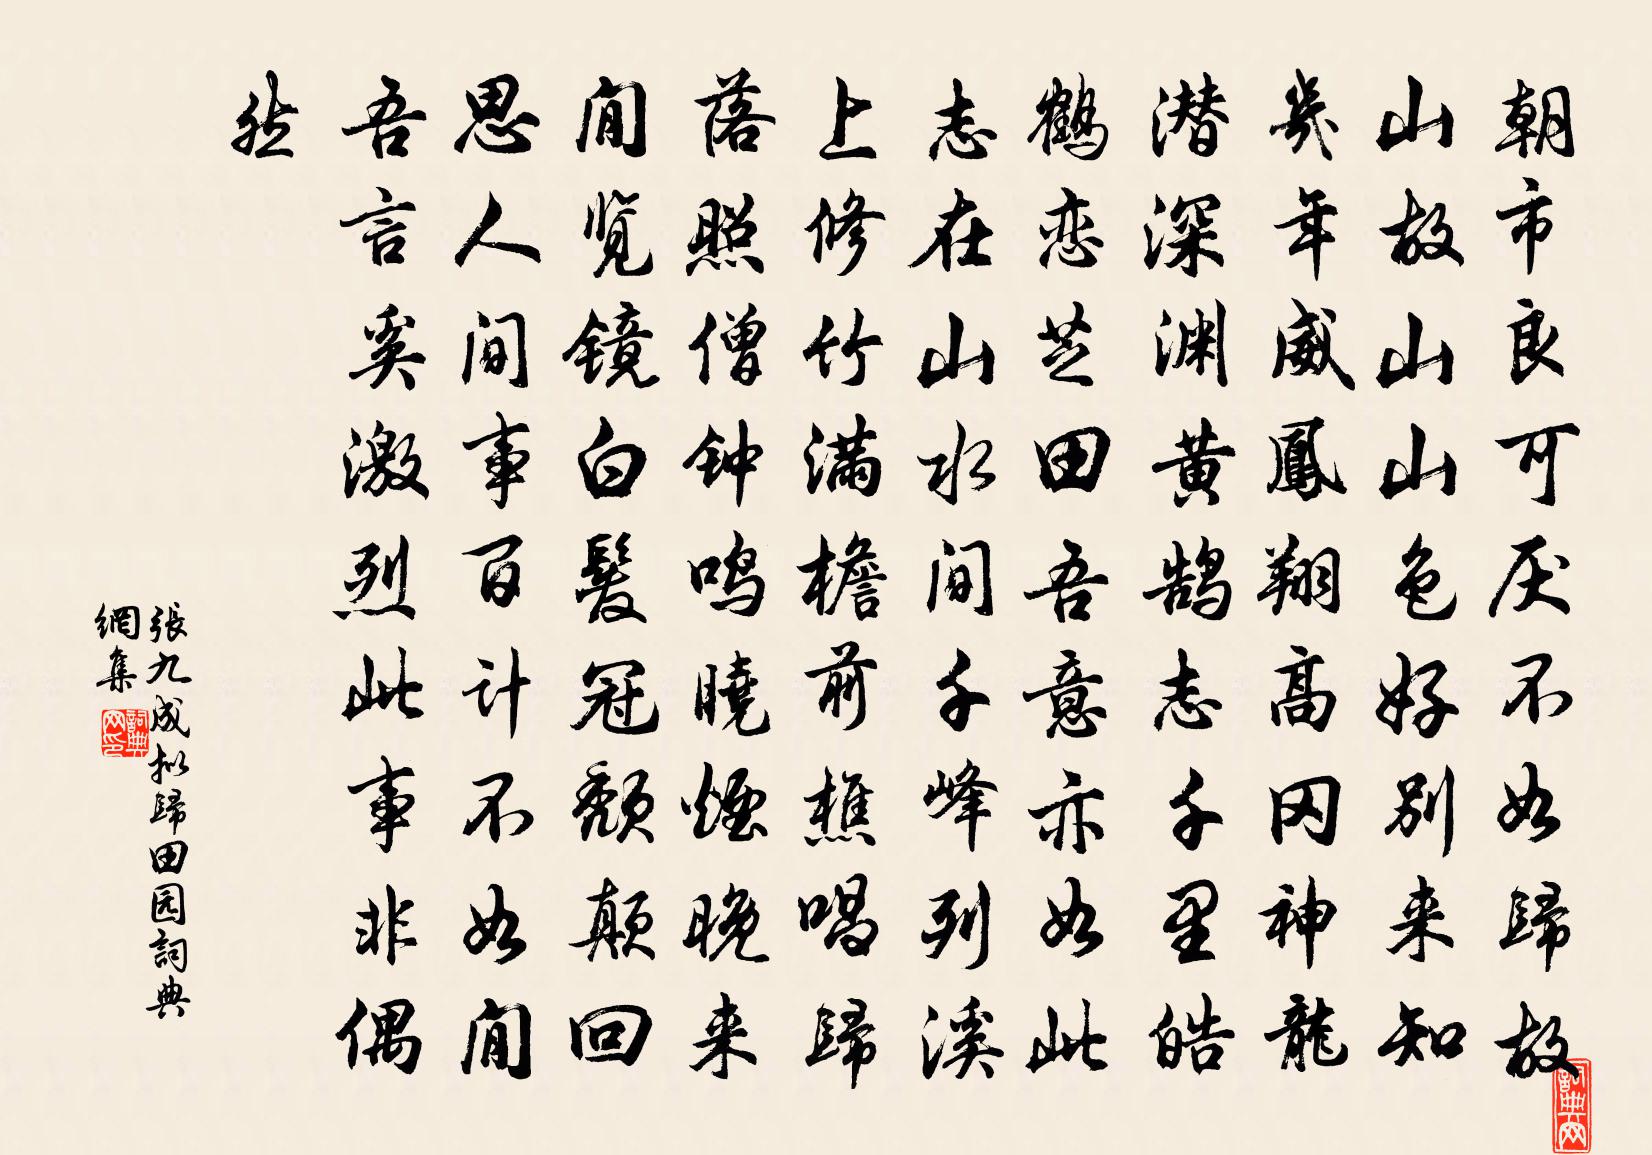 朝市良可厌不如歸故
山故山山色好别来知
幾年威鳳翔髙冈神龍
潜深渊黄鹄志千里皓
鶴恋芝田吾意亦如此
志在山水间千峰列溪
上修竹满檐前樵唱歸
落照僧钟鸣曉煙晚来
闲览镜白髪冠颓颠回
思人间事百计不如闲
吾言奚激烈此事非偶
然
張九成拟歸田园詞典
網集
詞典网
詞典网印